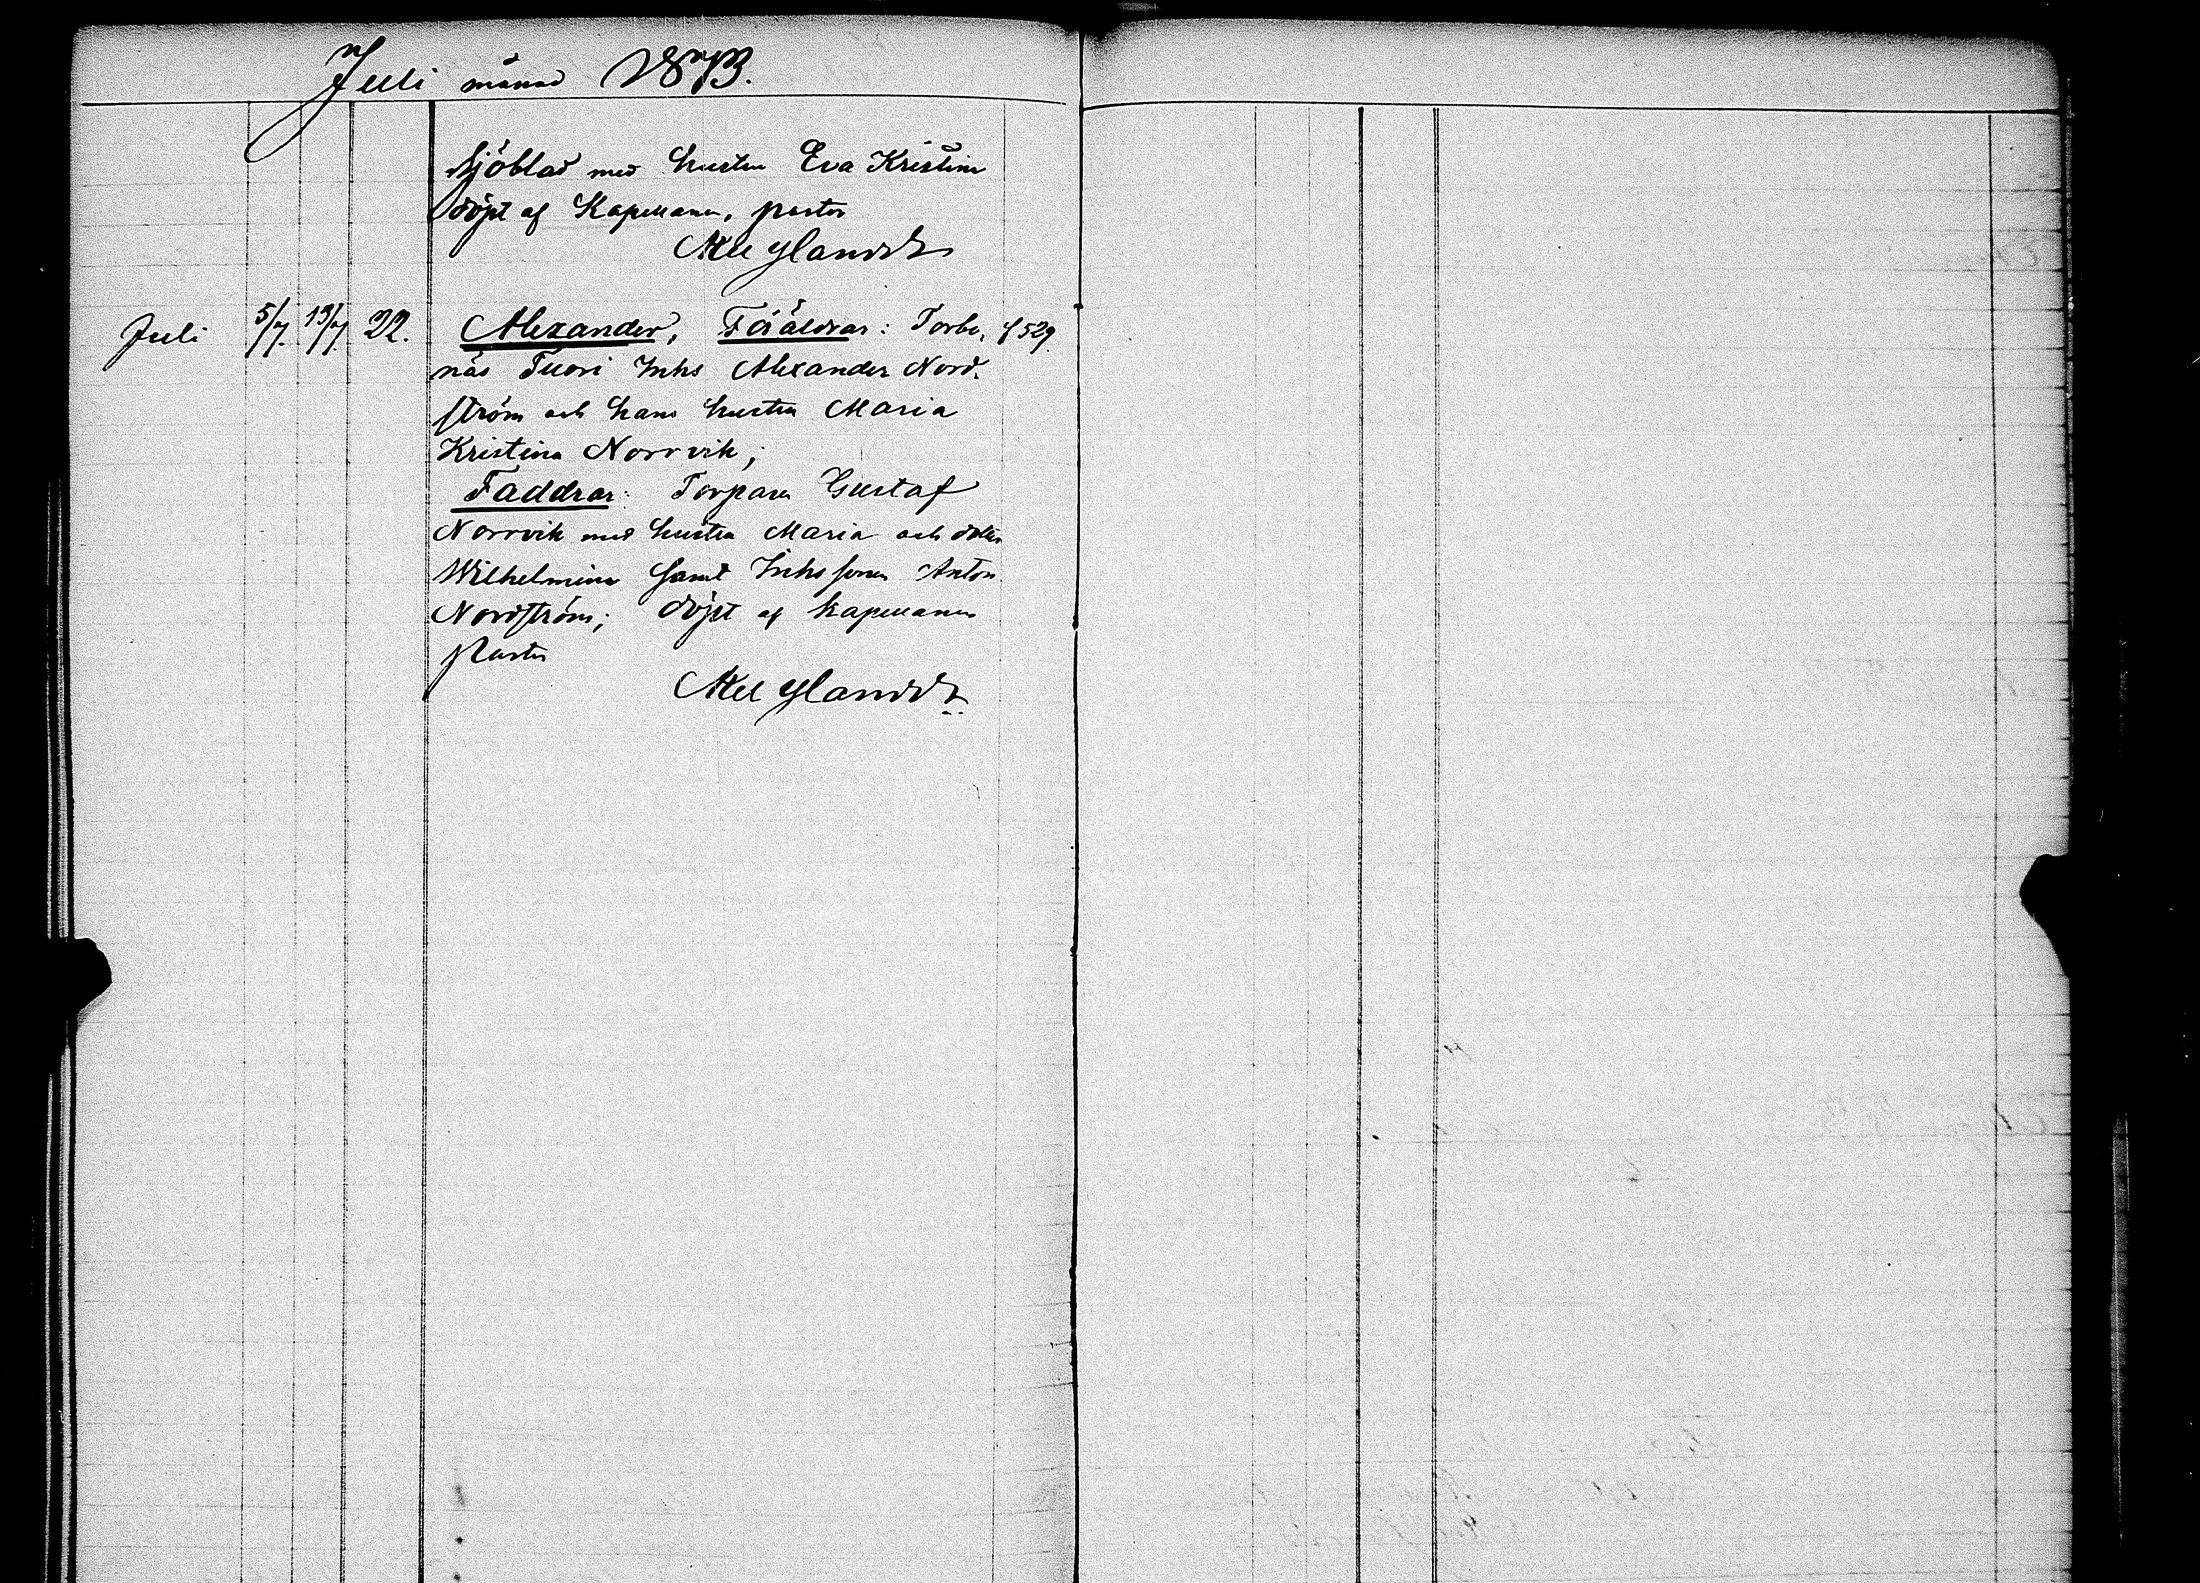 Juli månad 1873.
Sjöblad med hustru Eva Kristina
döpt af Kapellanen, pastor
Axel Ylandr
Juli 5/7. 13/7. 22. Alexander, Föräldrar: Torbo, f 529.
näs Tuori Inhs Alexander Nord-
ström och hans hustru Maria
Kristina Norrvik;
Faddrar: Torparen Gustaf
Norrvik med hustru Maria och dotter
Wilhelmina samt Inhs sonen Anton
Nordström; döpt af kapellanen
Pastor
Axel Ylandr